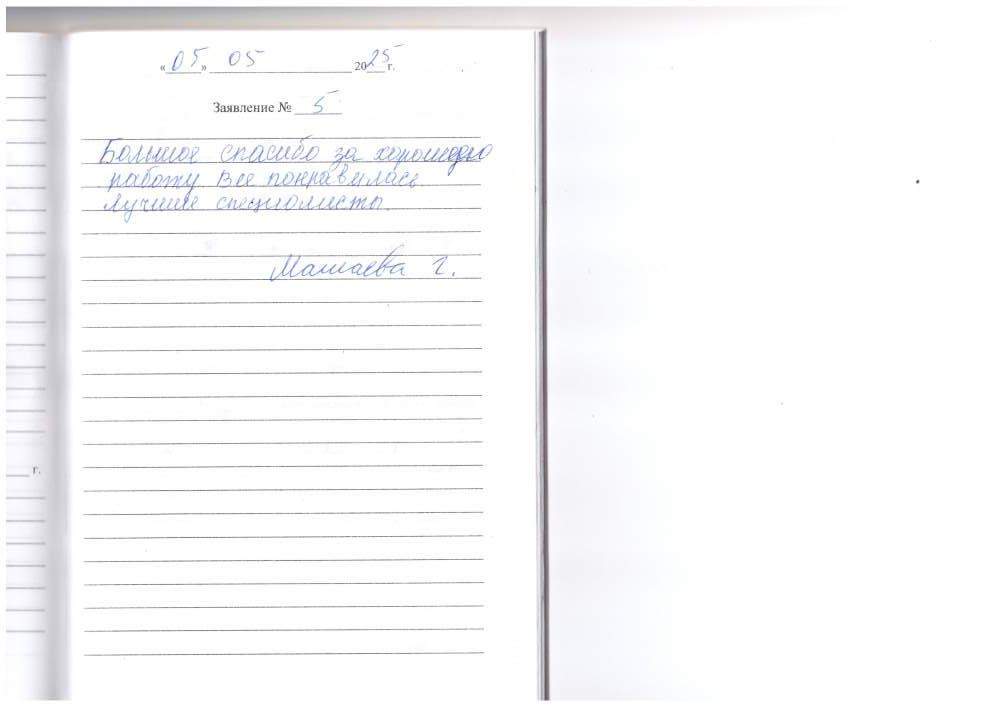 «05» 05 2025 г.
Заявление № 5
Большое спасибо за хорошую
работу Все понравилась
лучшие специолисты.
Машаева Г.
г.